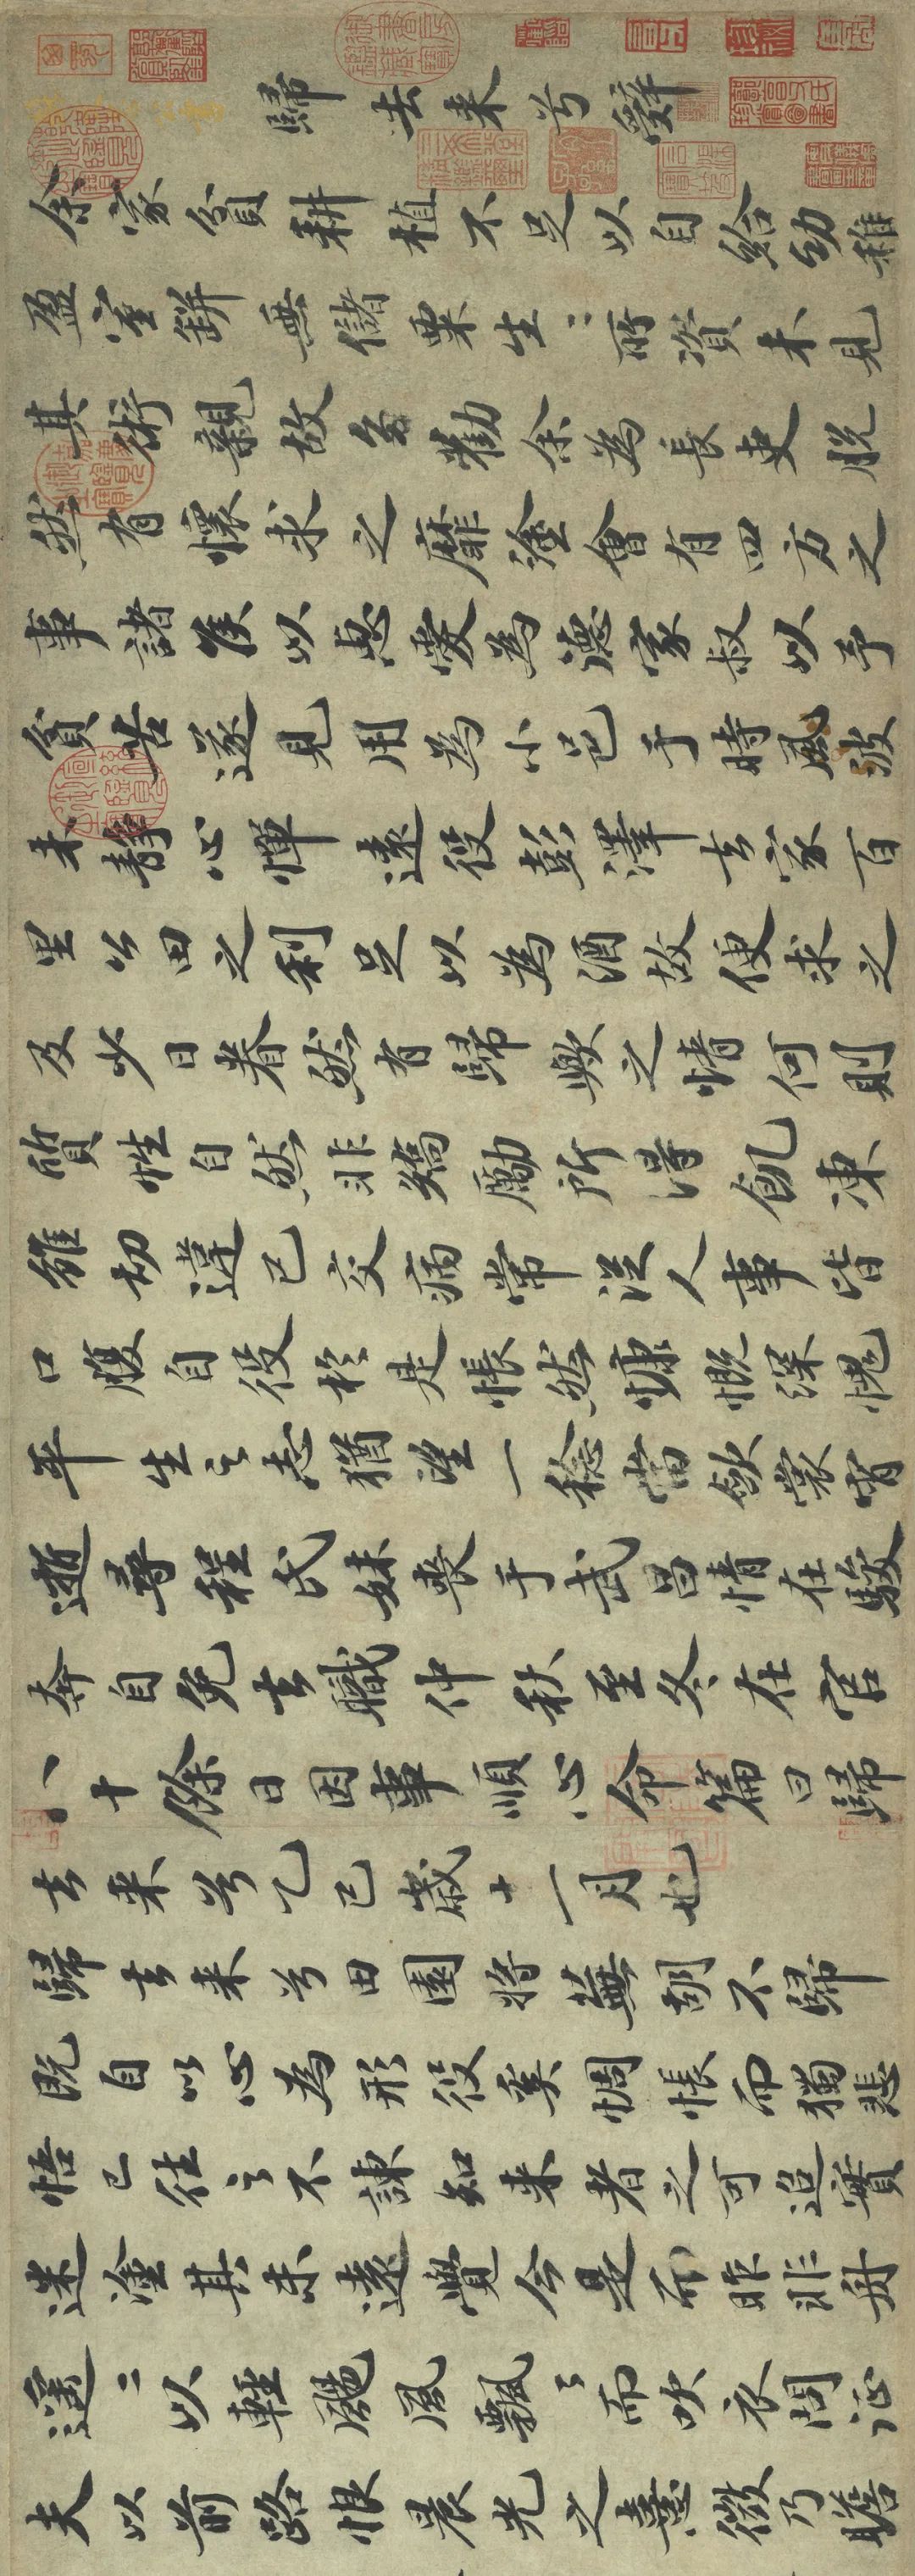 歸去来兮辭
余家貧耕植不足以自給幼稚
盈室缾無儲粟生〻所資未見
其術親故多勸余為長吏脫
然有懷求之靡塗會有四方之
事諸侯以惠愛為德家叔以予
貧苦遂見用為小邑于時風波
未靜心憚遠役彭澤去家百
里公田之利足以為酒故便求之
及少日眷然有歸歟之情何則
質性自然非矯勵所得飢凍
雖切違己交病常從人事皆
口腹自役於是悵然慷慨深愧
平生之志猶望一稔當斂裳宵
逝尋程氏妹喪于武昌情在駿
奔自免去職仲秋至冬在官
八十餘日因事順心命篇曰歸
去来兮乙巳歲十一月也
歸去来兮田園將蕪胡不歸
既自以心為形役奚惆悵而獨悲
悟已往之不諫知来者之可追實
迷塗其未遠覺今是而昨非舟
遥〻以輕颺風飄〻而吹衣問征
夫以前路恨晨光之熹微乃瞻